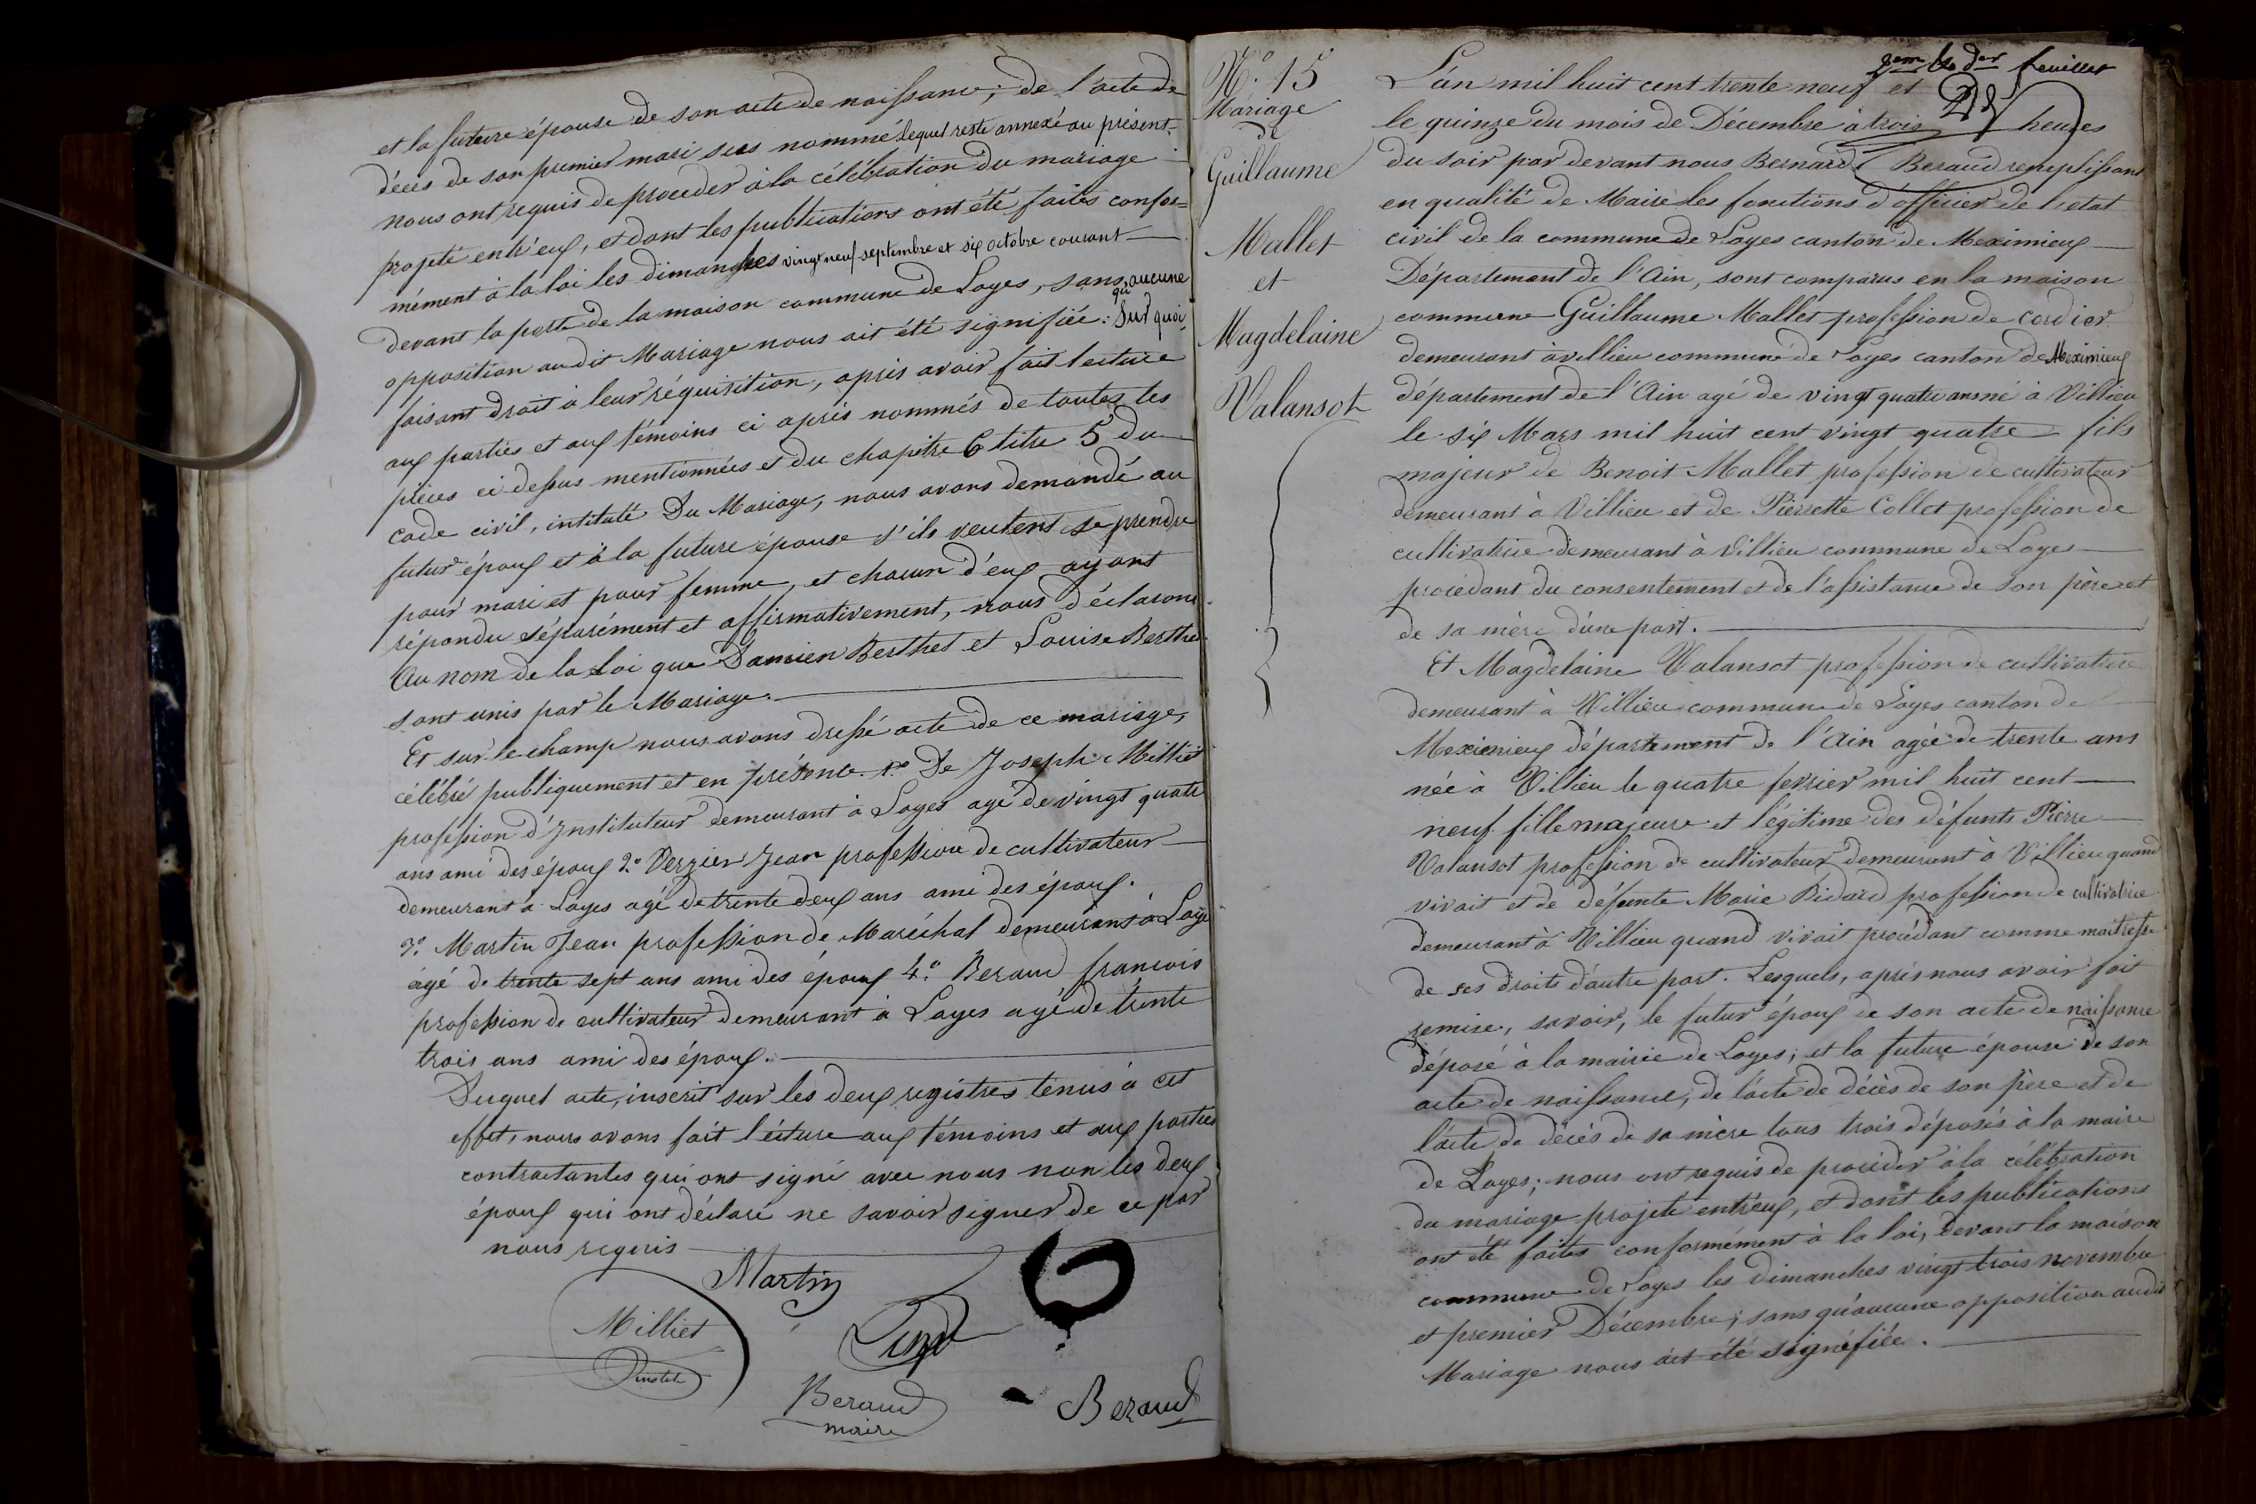 et la future épouse de son acte de naissance; de l'acte de
décès de son premier mari sus nommé lequel reste annexé au présent.
nous ont requis de procéder à la célébration du mariage
projeté entr'eux, et dont les publications ont été faites confor=
mément à la loi les dimanches vingt neuf septembre et six octobre courant
devant la porte de la maison commune de Loyes, sans qu'aucune
opposition audit Mariage nous ait été signifiée: Sur quoi,
faisant droit à leur réquisition, après avoir fait lecture
aux parties et aux témoins ci après nommés de toutes les
pièces ci dessus mentionnées et du chapitre 6 titre 5 du
code civil, intitulé Du Mariage, nous avons demandé au
futur époux et à la future épouse s'ils veulent se prendre
pour mari et pour femme, et chacun d'eux ayant
répondu séparément et affirmativement, nous déclarons
Au nom de la Loi que Damien Berthet et Louise Berthe
sont unis par le Mariage.
Et sur le champ nous avons dressé acte de ce mariage,
célébré publiquement et en présence 1o De Joseph Milliet
profession d'Instituteur demeurant à Loyes agé de vingt quatre
ans ami des époux 2o Verzier Jean profession de cultivateur
demeurant à Loyes agé de trente deux ans ami des époux.
3o Martin Jean profession de Maréchal demeurant à Loye
agé de trente sept ans ami des époux 4o Beraud françois
profession de cultivateur demeurant à Loyes agé de trente
trois ans ami des époux.
Duquel acte, inscrit sur les deux registres tenus à cet
effet, nous avons fait lecture aux témoins et aux parties
contractantes qui ont signé avec nous non les deux
époux qui ont déclaré ne savoir signer de ce par
nous requis
Martin
Milliet
Beraud
maire
Beraud
No 15
Mariage
de
Guillaume
Mallet
et
Magdelaine
Valansot
2em le der feuillet
L'an mil huit cent trente neuf et
le quinze du mois de Décembre à trois heures
du soir par devant nous Bernard Beraud remplissant
en qualité de Maire les fonctions d'officier de l'etat
civil de la commune de Loyes canton de Meximieux
Département de l'Ain, sont comparus en la maison
commune Guillaume Mallet profession de cordier
demeurant à villieu commune de Loyes canton de Meximieux
département de l'Ain agé de vingt quatre ans né à Villieu
le six Mars mil huit cent vingt quatre fils
majeur de Benoit Mallet profession de cultivateur
demeurant à Villieu et de Pierrette Collet profession de
cultivatrice demeurant à Villieu commune de Loyes
procédant du consentement et de l'assistance de son père et
de sa mère d'une part.
Et Magdelaine Valansot profession de cultivatrice
demeurant à Villieu commune de Loyes canton de
Meximieux département de l'Ain agée de trente ans
née à Villieu le quatre fevrier mil huit cent
neuf fille majeure et légitime des défunts Pierre
Valansot profession de cultivateur demeurant à Villieu quand
vivait et de défunte Marie Bidard profession de cultivatrice
demeurant à Villieu quand vivait procédant comme maitresse
de ses droits d'autre part. Lesquels, après nous avoir fait
remise, savoir, le futur époux de son acte de naissance
déposé à la mairie de Loyes; et la future épouse de son
acte de naissance, de l'acte de décès de son père et de
l'acte de décès de sa mère tous trois déposés à la maire
de Loyes; nous ont requis de procéder à la célébration
du mariage projeté entr'eux, et dont les publications
ont été faites conformément à la loi, devant la maison
commune de Loyes les dimanches vingt trois novembre
et premier Décembre; sans qu'aucune opposition audit
Mariage nous ait été signifiée.